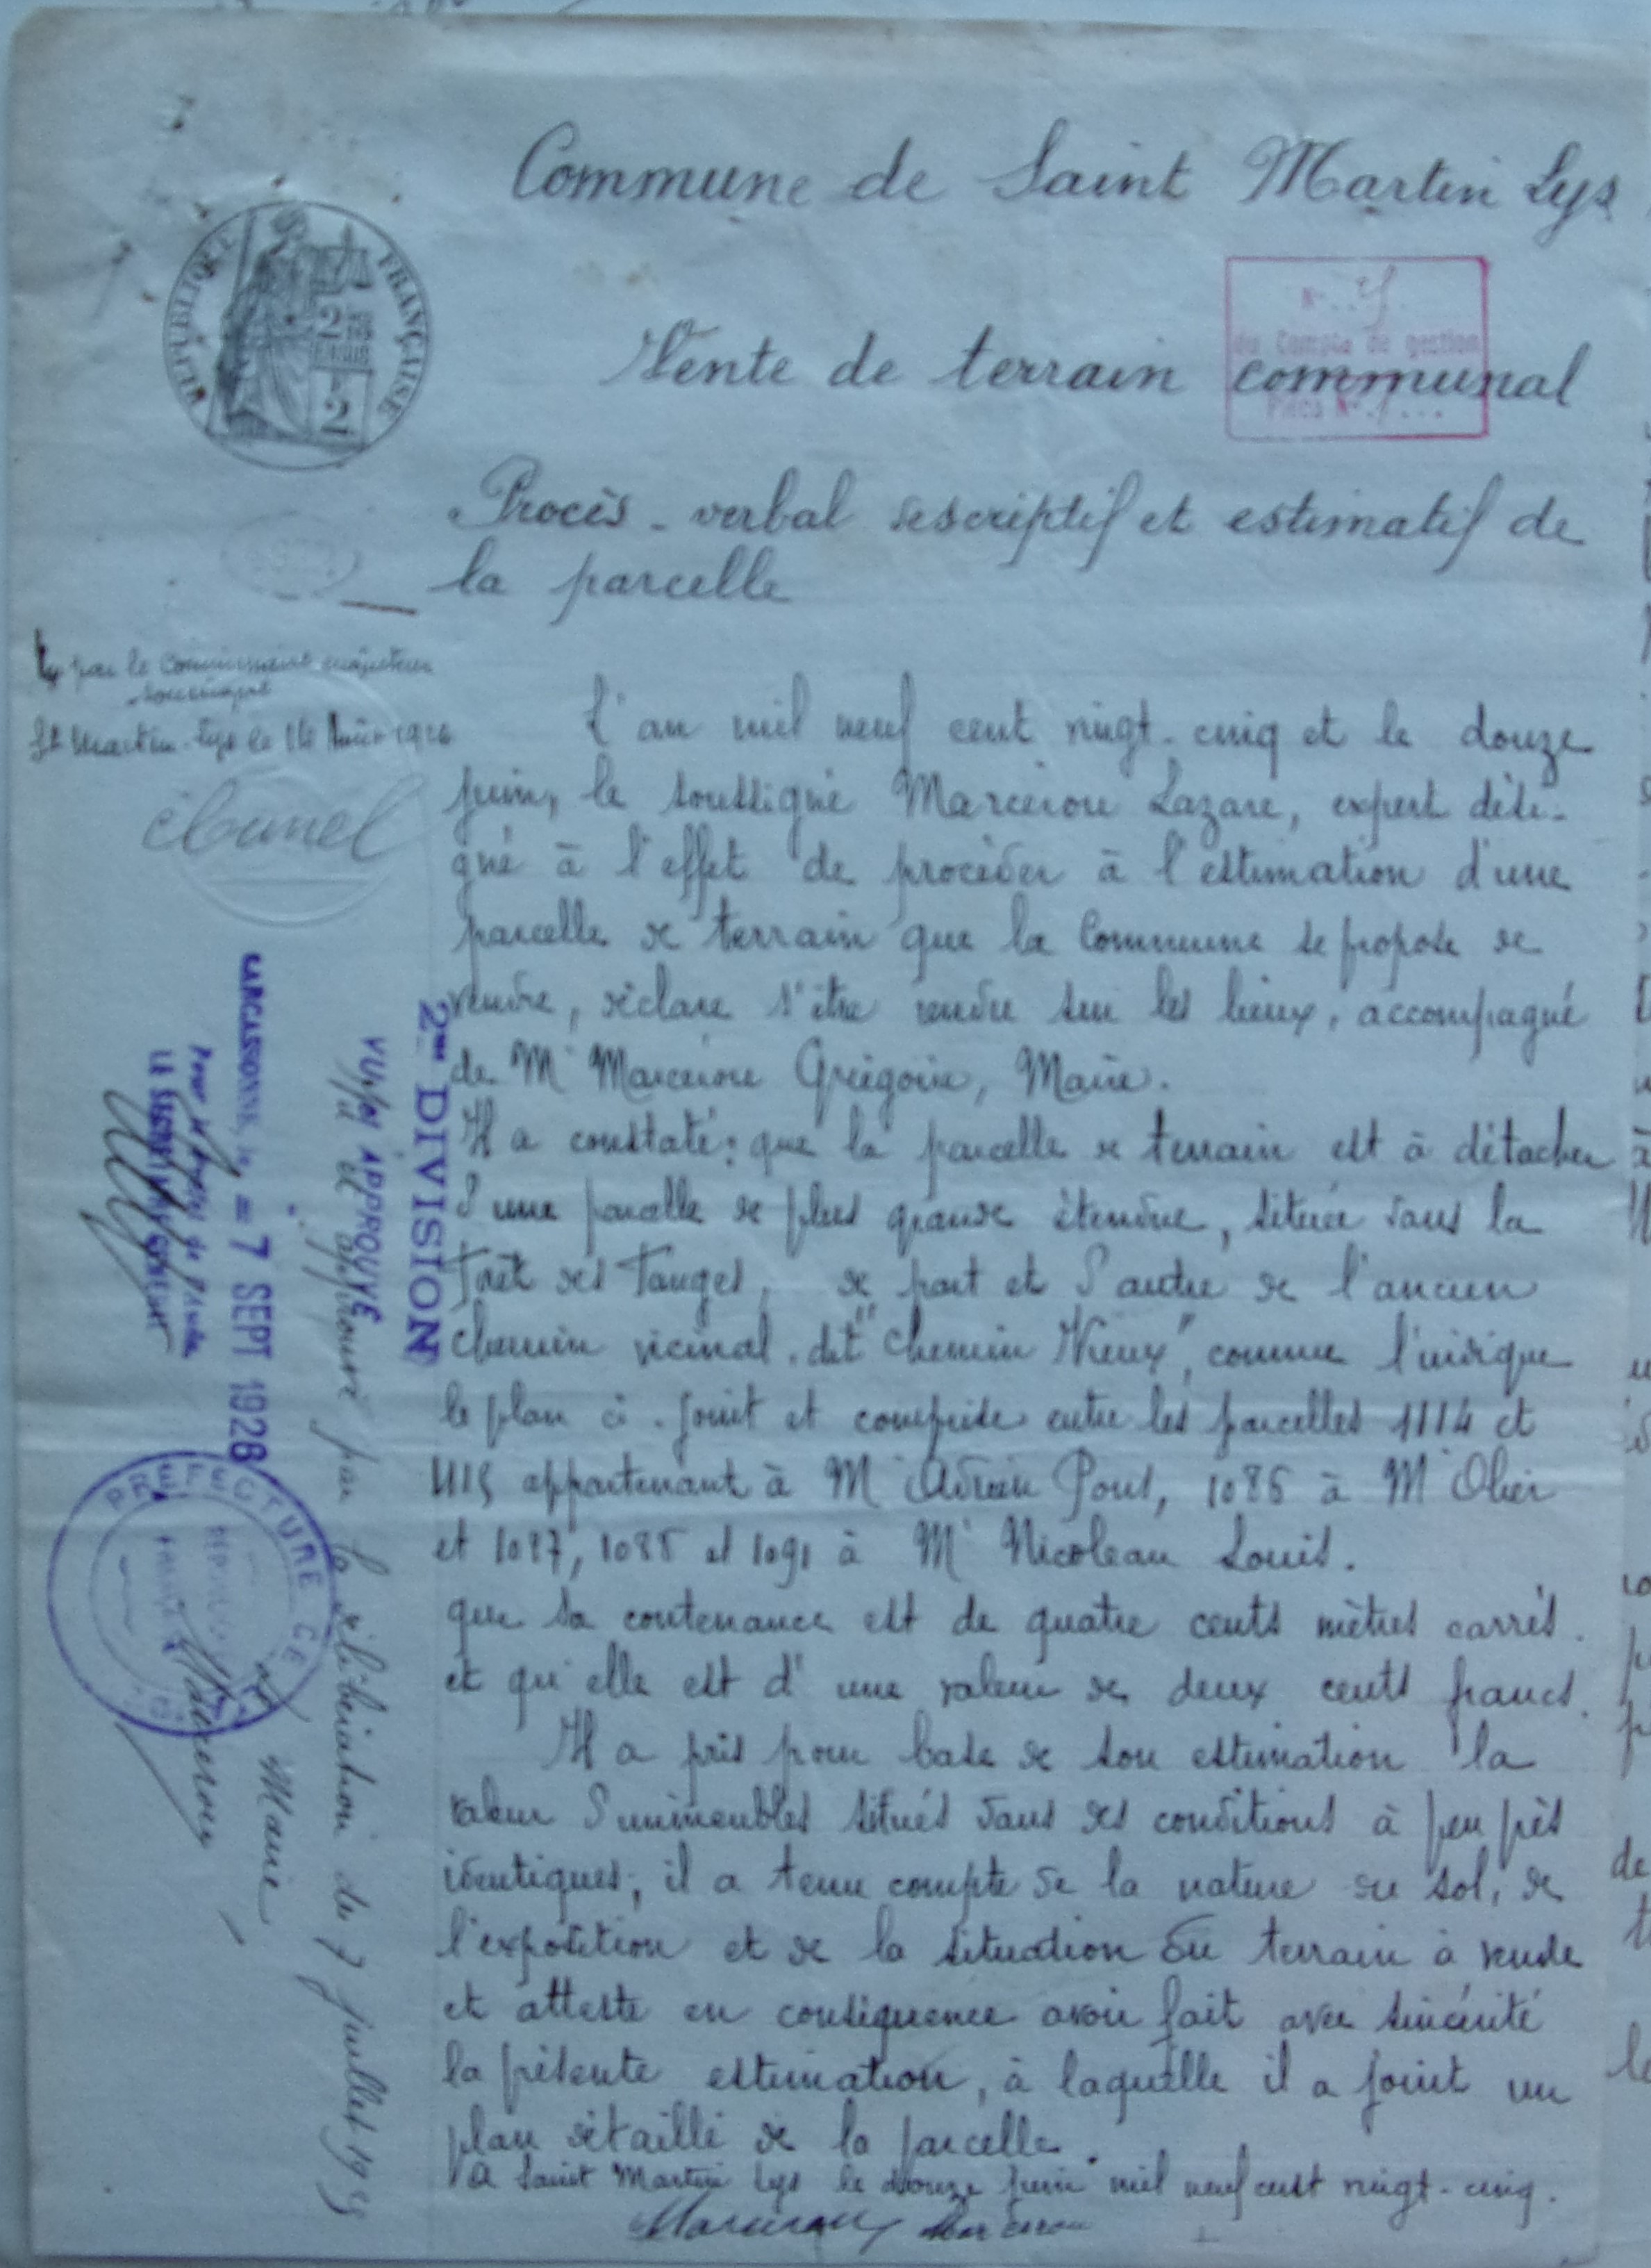 Commune de Saint Martin Lys
RÉPUBLIQUE FRANÇAISE
2
2
N°
du Compte de gestion
Pièce N°
Vente de terrain communal
Procès-verbal descriptif et estimatif de
la parcelle
Vu par le Commissaire enquêteur
soussigné
St Martin-Lys le 14 1926
L'an mil neuf cent vingt-cinq et le douze
juin, le soussigné Marcerou Lazare, expert dési-
gné à l'effet de procéder à l'estimation d'une
parcelle de terrain que la Commune se propose de
vendre, déclare s'être rendu sur les lieux, accompagné
de Mr Marcerou Grégoire, Maire.
Il a constaté: que la parcelle de terrain est à détacher
d'une parcelle de plus grande étendue, située dans la
Forêt des Fanges, de part et d'autre de l'ancien
chemin vicinal, dit "Chemin Vieux", comme l'indique
le plan ci-joint et comprise entre les parcelles 1114 et
1115 appartenant à Mr Adrien Pons, 1086 à Mr Olier
et 1087, 1088 et 1091 à Mr Nicoleau Louis.
que sa contenance est de quatre cents mètres carrés.
et qu'elle est d'une valeur de deux cents francs.
Il a pris pour base de son estimation la
valeur d'immeubles situés dans des conditions à peu près
identiques; il a tenu compte de la nature du sol, de
l'exposition et de la situation du terrain à vendre
et atteste en conséquence avoir fait avec sincérité
la présente estimation, à laquelle il a joint un
plan détaillé de la parcelle.
A Saint Martin Lys le douze juin mil neuf cent vingt-cinq.
Marcerou Marcerou
2me DIVISION
VU ET APPROUVÉ
CARCASSONNE, le = 7 SEPT 1926
Pour le Préfet de l'Aude
LE SECRÉTAIRE GÉNÉRAL
PRÉFECTURE DE
Vu et approuvé par la délibération du 7 juillet 19
Le Maire
Marcerou